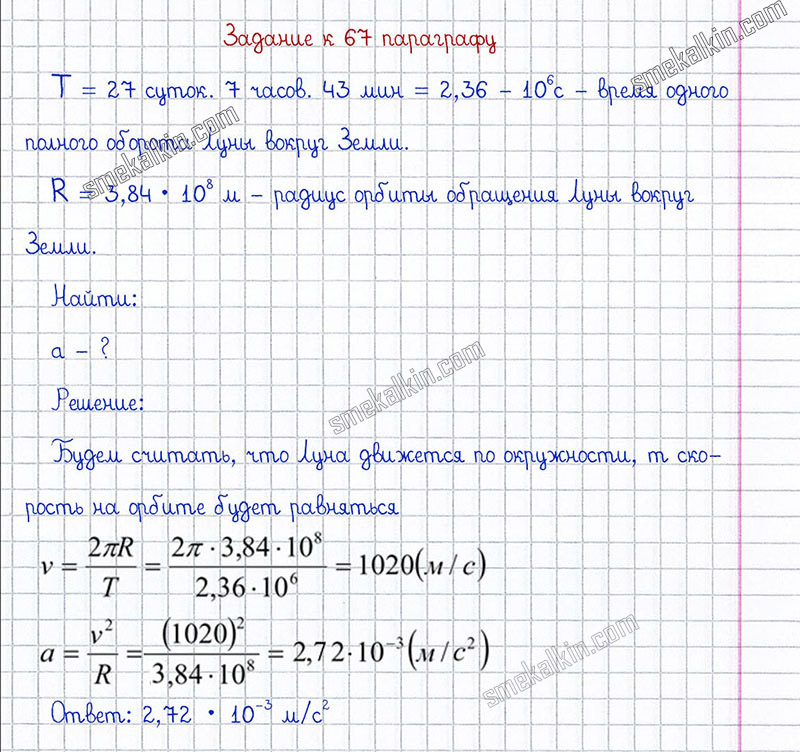 Задание к 67 параграфу
T = 27 суток. 7 часов. 43 мин = 2,36 – 10⁶с – время одного
полного оборота Луны вокруг Земли.
R = 3,84 · 10⁸ м – радиус орбиты обращения Луны вокруг
Земли.
Найти:
а – ?
Решение:
Будем считать, что Луна движется по окружности, т ско–
рость на орбите будет равняться
v = 2πR / T = 2π · 3,84 · 10⁸ / 2,36 · 10⁶ = 1020(м / с)
a = v² / R = (1020)² / 3,84 · 10⁸ = 2,72·10⁻³(м / с²)
Ответ: 2,72 · 10⁻³ м/с²
smekalkin.com
smekalkin.com
smekalkin.com
smekalkin.com